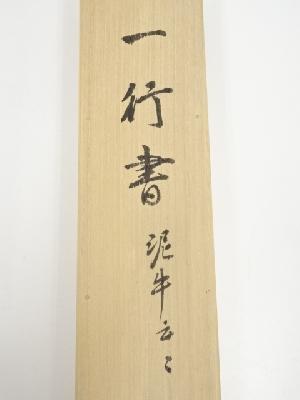 一行書
泥牛云々